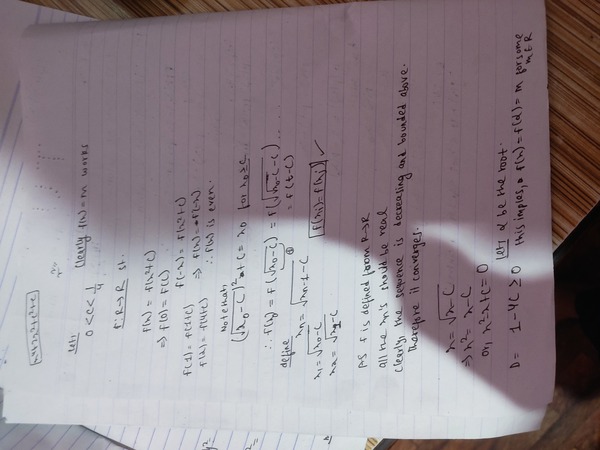 x→x²+c
Let,
0 < c < 1/4 Clearly f(x) = m works
f: R→R st.
f(x) = f(x²+c)
⇒ f(0) = f(c)
f(1) = f(1+c) f(-x) = f(x²+c)
f(2) = f(4+c) ⇒ f(x) = f(-x)
∴ f(x) is even.
Note that,
(√x₀-c)² + c = x₀ for x₀ ≥ c
∴ f(x₀) = f(√x₀-c) = f(√√x₀-c - c)
= f(t-c)
define
xₙ = √xₙ₋₁ - c
x₁ = √x₀-c
x₂ = √x₁-c f(xᵢ) = f(xⱼ) ✓
As f is defined from R→R
all the xᵢ's should be real
clearly, the sequence is decreasing and bounded above.
Therefore it converges.
x = √x-c
⇒ x² = x-c
or, x²-x+c = 0
D = 1-4c ≥ 0 Let, α be the root.
this implies, f(x) = f(α) = m for some
m ∈ R